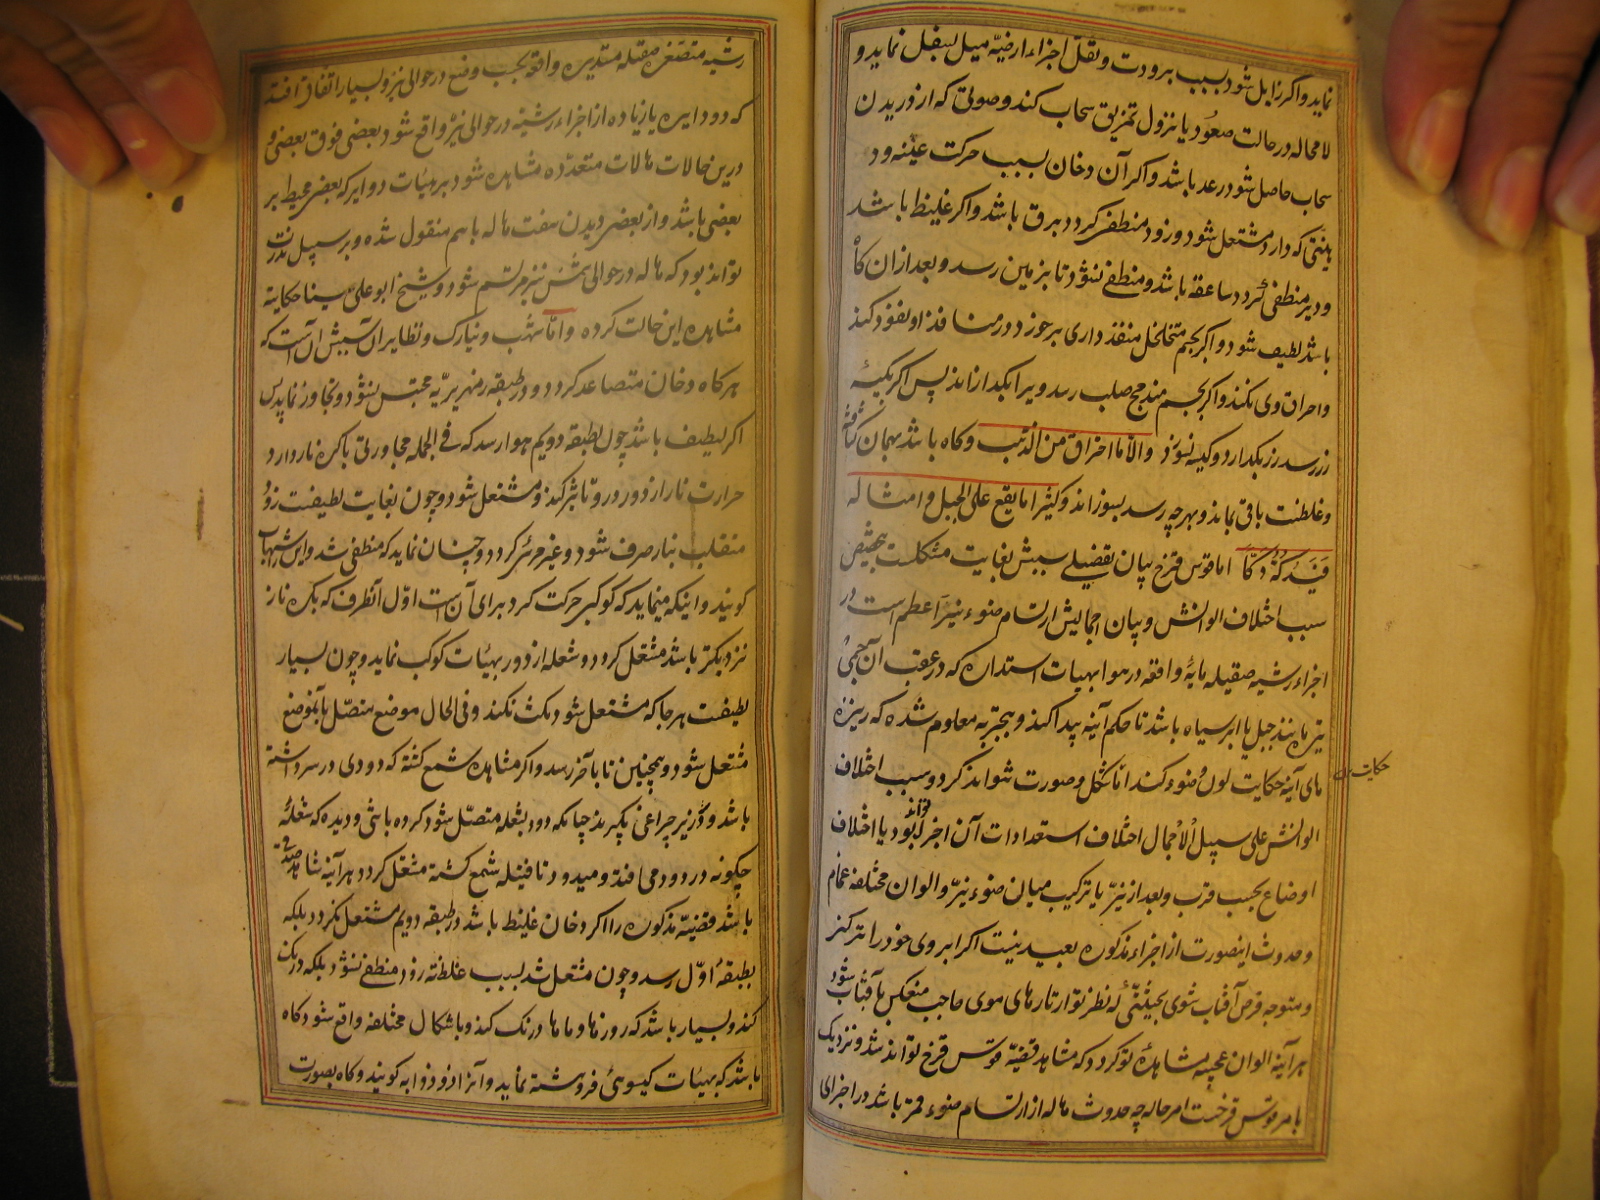 نماید و اکر زایل شود بسبب برودت و ثقل اجزاء ارضیّه میل بسفل نماید و
لامحاله در حالت صعود یا نزول تمزیق سحاب کند و صوتی که از دریدن
سحاب حاصل شود رعد باشد و اکر آن دخان بسبب حرکت عنیفه و د
هنیتی که دارد مشتعل شود و زود منطفی کردد برق باشد و اکر غلیظ باشد
و دیر منطفی کردد صاعقه باشد و منطفی نشود تا بزمین رسد و بعد از ان کاه
باشد لطیف شود و اکر بجسم متخلخل منفذ داری برخورد در منافذ او نفوذ کند
و احراق وی نکند و اکر بجسم مندمج صلب رسد ویرا بکدازاند پس اکر بکیسهٔ
زر رسد زر بکدازد و کیسه نسوزد والا ما احترق من الذنب و کاه باشد بهمان کثافت
و غلظت باقی بماند و بهر چه رسد بسوزاند و کثیرا ما یقع علی الجبل و امثاله
فیدکه دکّا اما قوس قزح بیان تفضیلی سببش بغایت مشکلست بتخصیص
سبب اختلاف الوانش و بیان اجمالیش ارتسام ضوء نیّر اعظم است در
اجزاء رشیه صقیله مایهٔ واقعه در هوا بهیات استداره که در عقب آن جسمی
تیره مانند جبل یا ابر سیاه باشد تا حکم آینه پیدا کند و بتجربه معلوم شده که ریزه
های آینه حکایت لون و ضوء کند امّا شکل و صورت نتواند کرد و سبب اختلاف
حکایت
الوانش علی سبیل الاجمال اختلاف استعدادات آن اجزا تواند بود یا اختلاف
اوضاع بحسب قرب و بعد از نیّر یا ترکیب میان ضوء نیّر و الوان مختلفه غمام
و حدوث اینصورت از اجزاء مذکوره بعید نیست اکر ابروی خود را تر کنی
و متوجه قرص آفتاب شوی بحیثیتی که نظر تو از تارهای موی حاجب منعکس بآفتاب شود
هر آینه الوان عجیبه مشاهدهٔ تو کردد که مشاهد قضیّه قوس قزح تواند شد و نزدیک
بامر قوس قزحست امر هاله چه حدوث هاله از ارتسام ضوء قمر باشد در اجزای
رشیه متصغره صقیله مستدیره واقعه بحسب وضع در حوالی نیّر و بسیار اتفاق افتد
که دو دایره یا زیاده از اجزاء رشیه در حوالی نیّر واقع شود بعضی فوق بعضی و
درین حالات هالات متعدّده مشاهده شود بر هیئات دوایر که بعضی محیط بر
بعضی باشد و از بعضی دیدن هفت هاله با هم منقول شده و بر سبیل ندرت
تواند بود که هاله در حوالی شمس نیز مرتسم شود و شیخ ابو علی سینا حکایة
مشاهده این حالت کرده و امّا شهب و نیازک و نظایر ان سببش آن است که
هر کاه دخان متصاعد کردد و در طبقه زمهریریّه محتبس نشود و تجاوز نماید پس
اکر لطیف باشد چون بطبقه دویم هوا رسد که فی الجمله مجاورتی با کره نار دارد
حرارت نار از دور در و تاثیر کند و مشتعل شود و چون بغایت لطیفست زود
منقلب بنار صرف شود و غیر مرئی کردد و چنان نماید که منطفی شد و این را شهاب
کویند و اینکه مینماید که کوکبی حرکت کرد برای آن است اول آنطرف که بکره نار
نزدیکتر باشد مشتعل کردد و شعله از دور بهیئات کوکب نماید و چون بسیار
لطیفست هر جا که مشتعل شود مکث نکند و فی الحال موضع متصل بآنموضع
مشتعل شود و همچنین تا بآخر رسد و اکر مشاهده شمع کشته که دودی در سر داشته
باشد و در زیر چراغی بکیرند چنانکه دود بشعله متصل شود کرده باشی و دیده که شعله
چکونه در دود می افتد و میدود تا فتیله شمع کشته مشتعل کردد هر آینه شاهد صدق
باشد قضیّه مذکوره را اکر دخان غلیظ باشد در طبقه دویم مشتعل نکردد بلکه
بطبقهٔ اوّل رسد و چون مشتعل شد بسبب غلظته زود منطفی نشود بلکه درنک
کند و بسیار باشد که روزها و ماها درنک کند و باشکال مختلفه واقع شود کاه
باشد که بهیئات کیسوئی فروهشته نماید و آنرا ذو ذوابه کویند و کاه بصورت